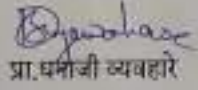 प्रा.धमाजी व्यवहारे